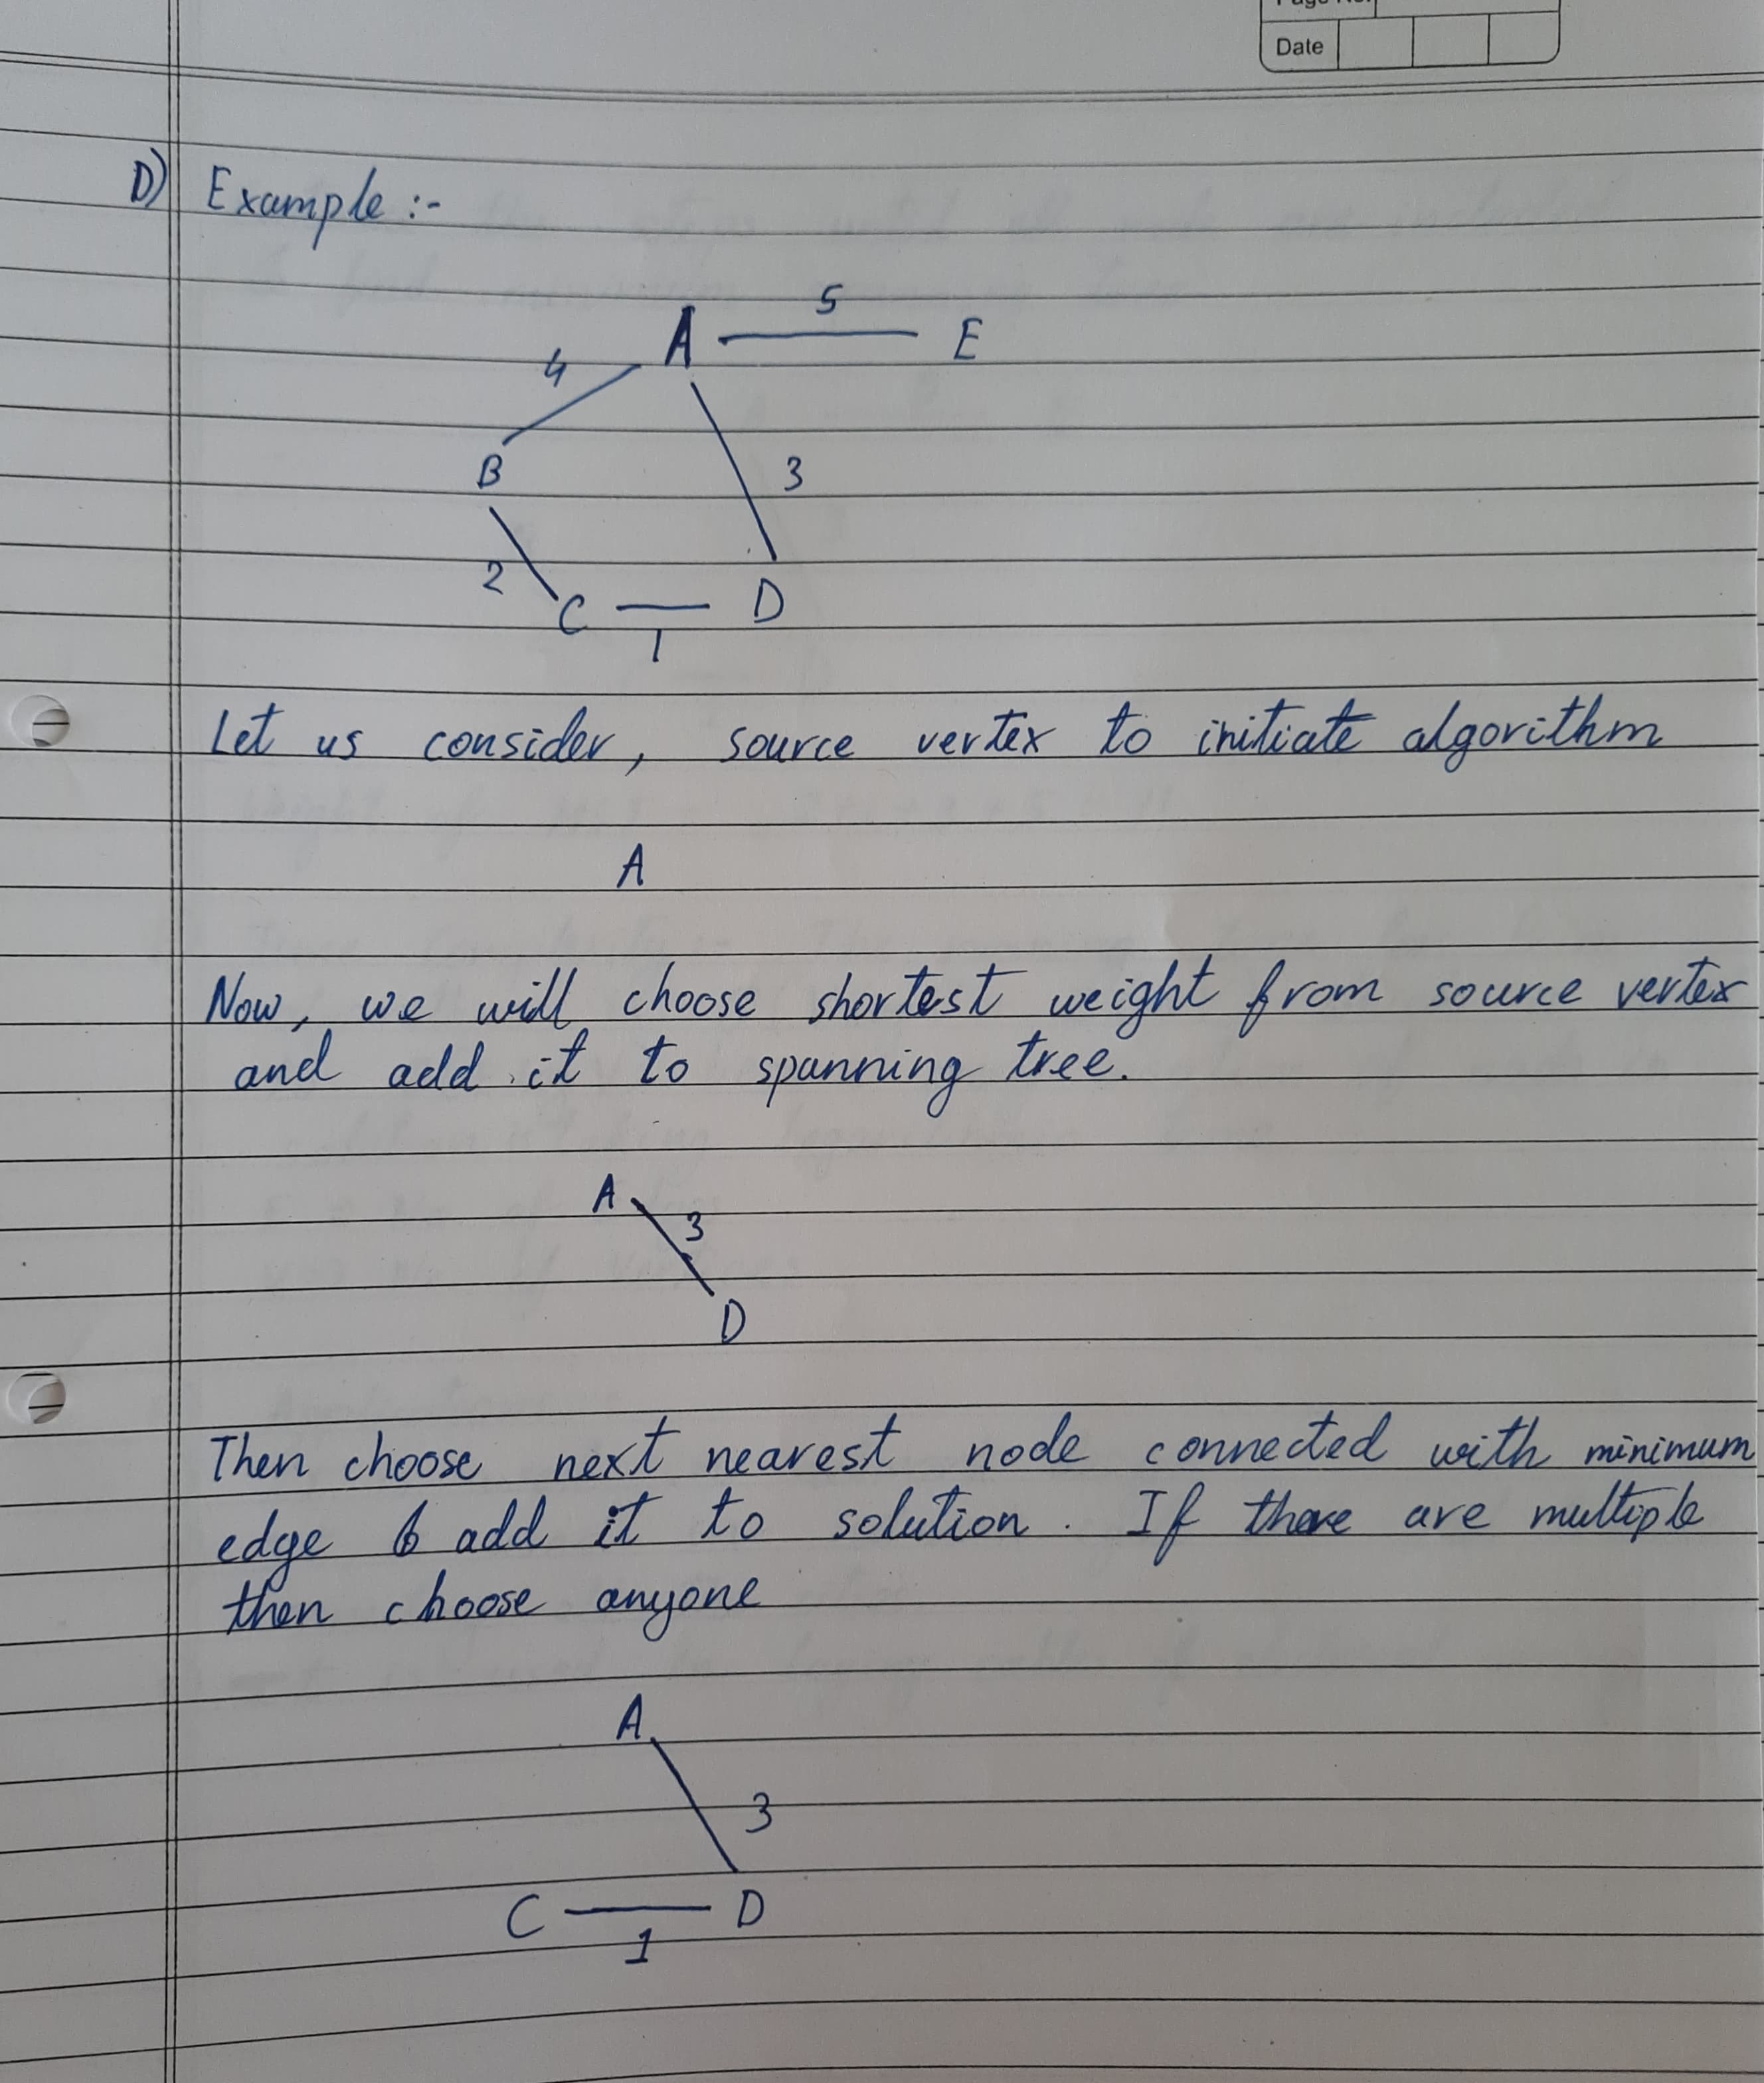 Date
D) Example :-
5
A E
4
B 3
2
C D
1
Let us consider, source vertex to initiate algorithm
A
Now, we will choose shortest weight from source vertex
and add it to spanning tree.
A
3
D
Then choose next nearest node connected with minimum
edge & add it to solution. If there are multiple
then choose anyone
A
3
C D
1